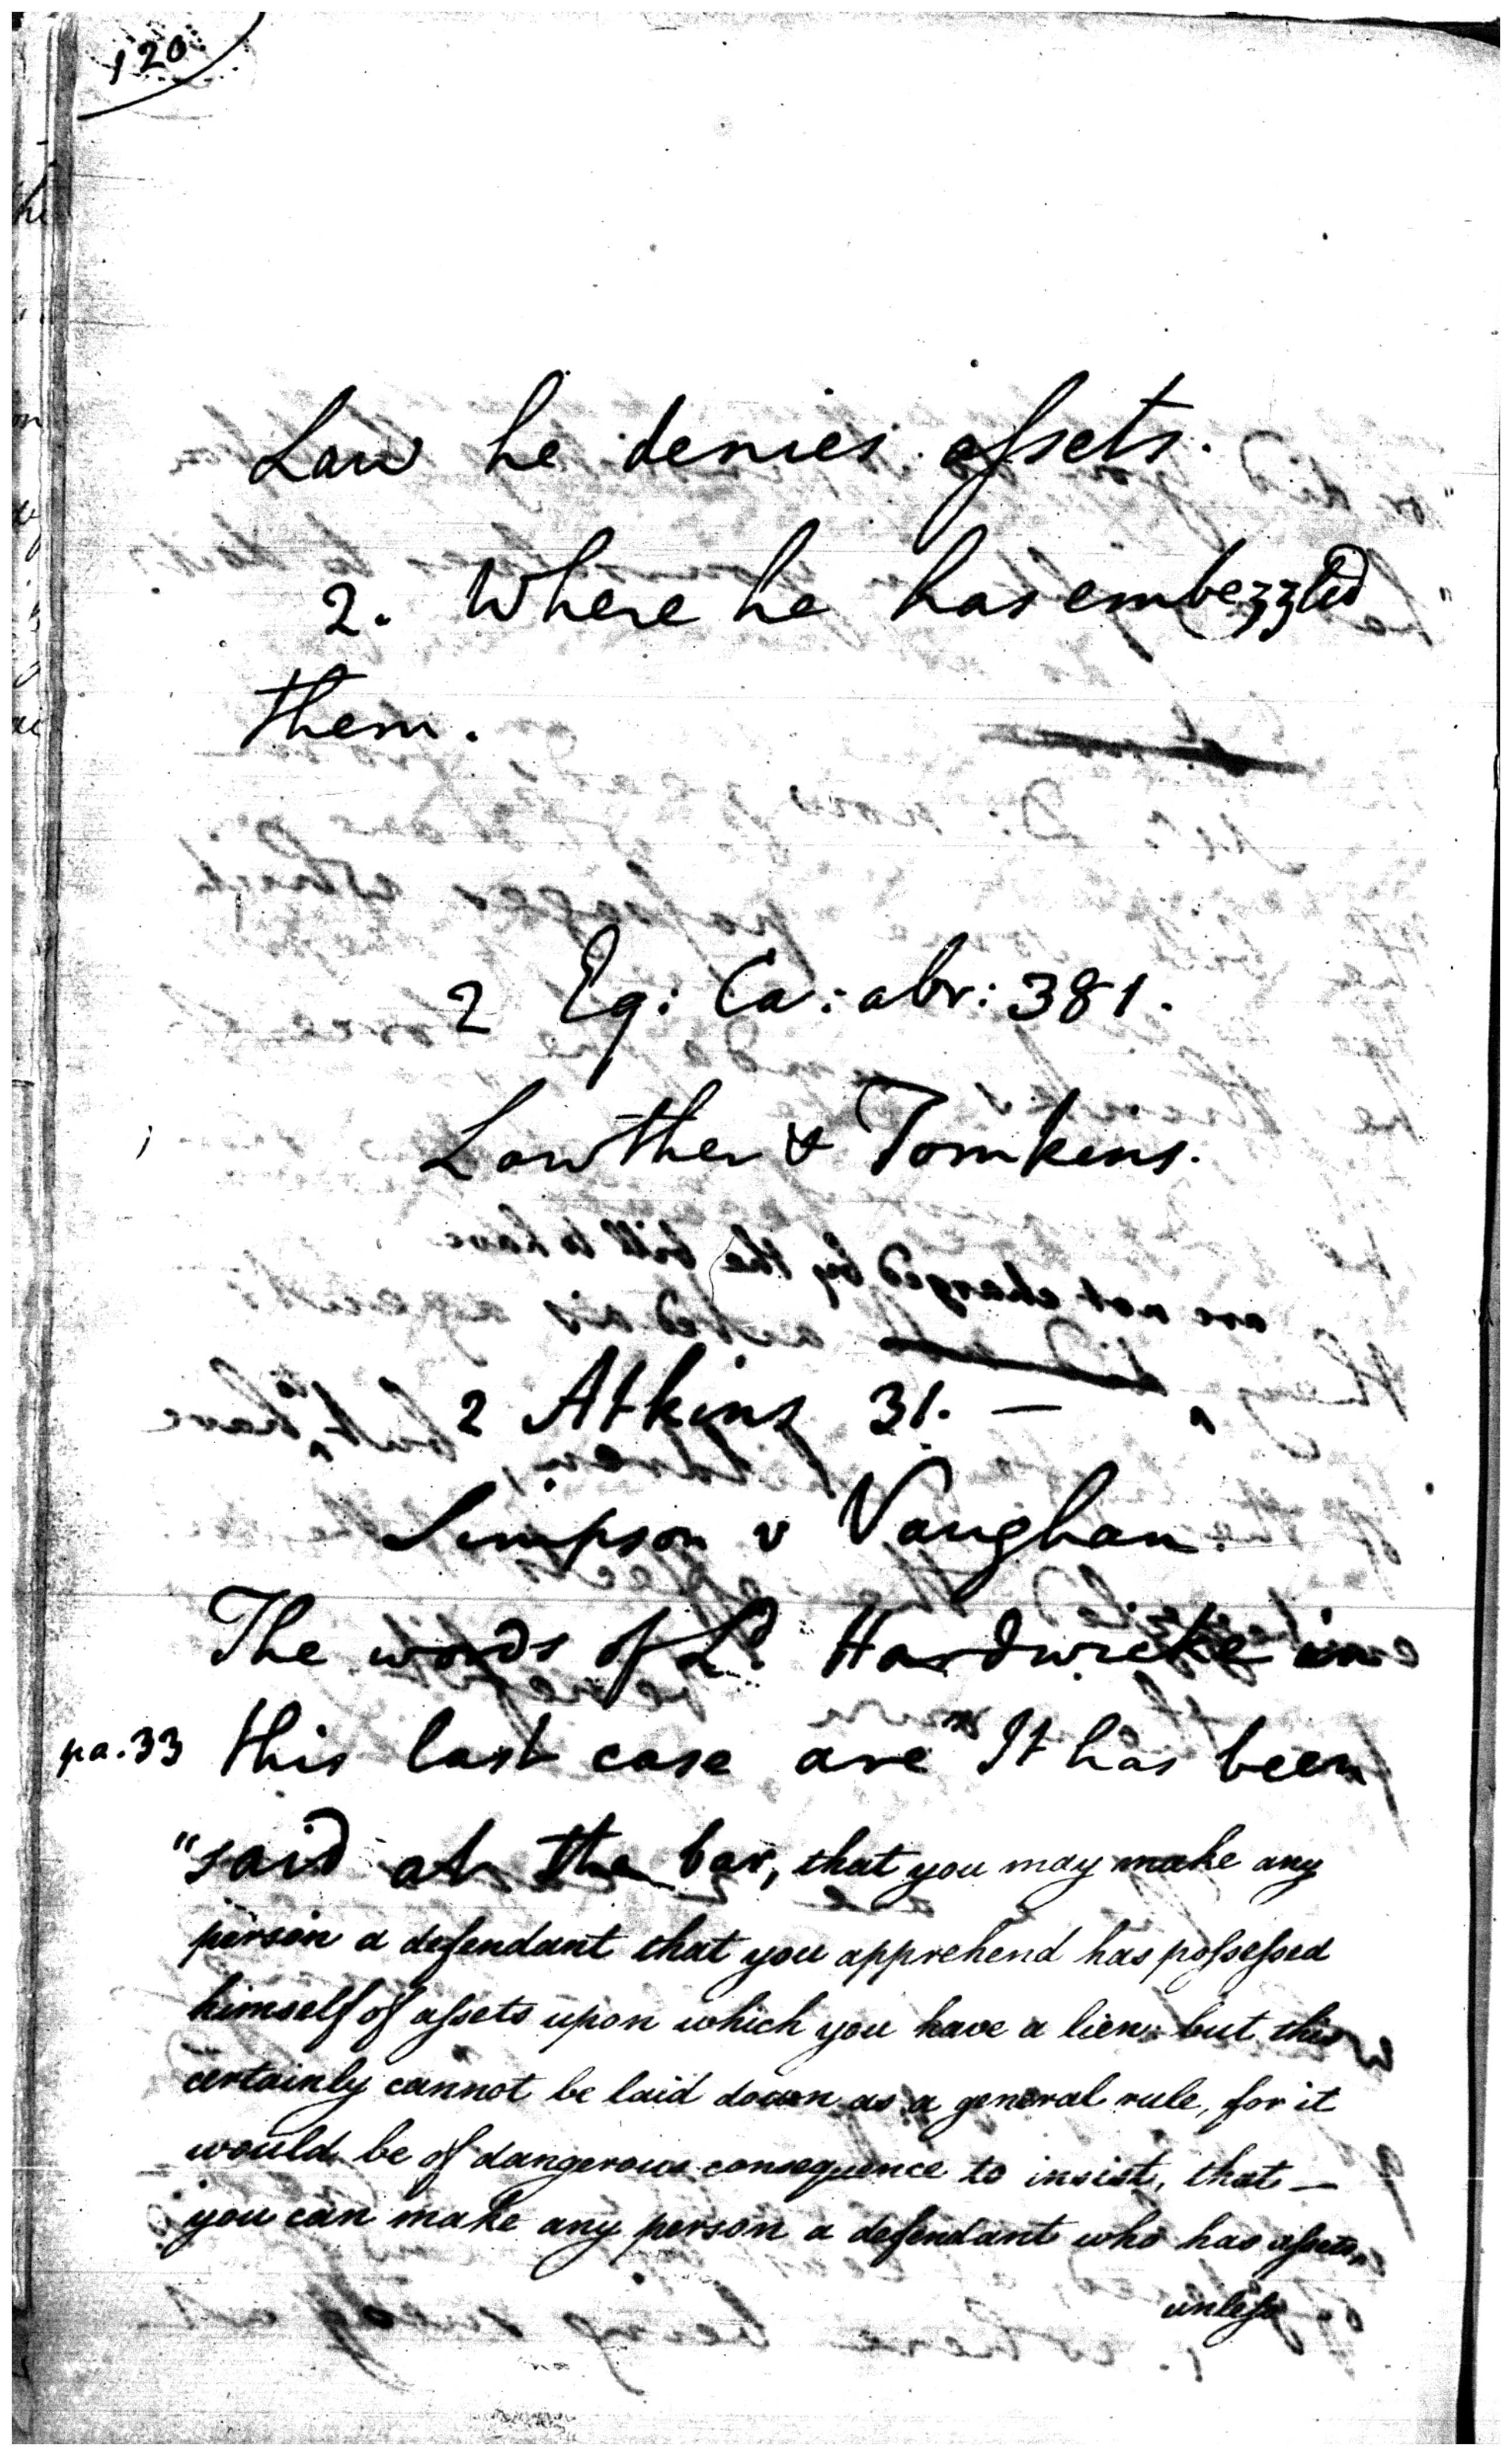 120
Law he denies assets.
2. Where he has embezzled
them.
2 Eq: Ca: abr: 381.
Lowther & Tomkins.
2 Atkins 31. —
Simpson v Vaughan.
The words of Ld. Hardwicke in
pa. 33 this last case are "It has been
"said at the bar, that you may make any
person a defendant that you apprehend has possessed
himself of assets upon which you have a lien: but this
certainly cannot be laid down as a general rule, for it
would be of dangerous consequence to insist, that —
you can make any person a defendant who has assets,
unless